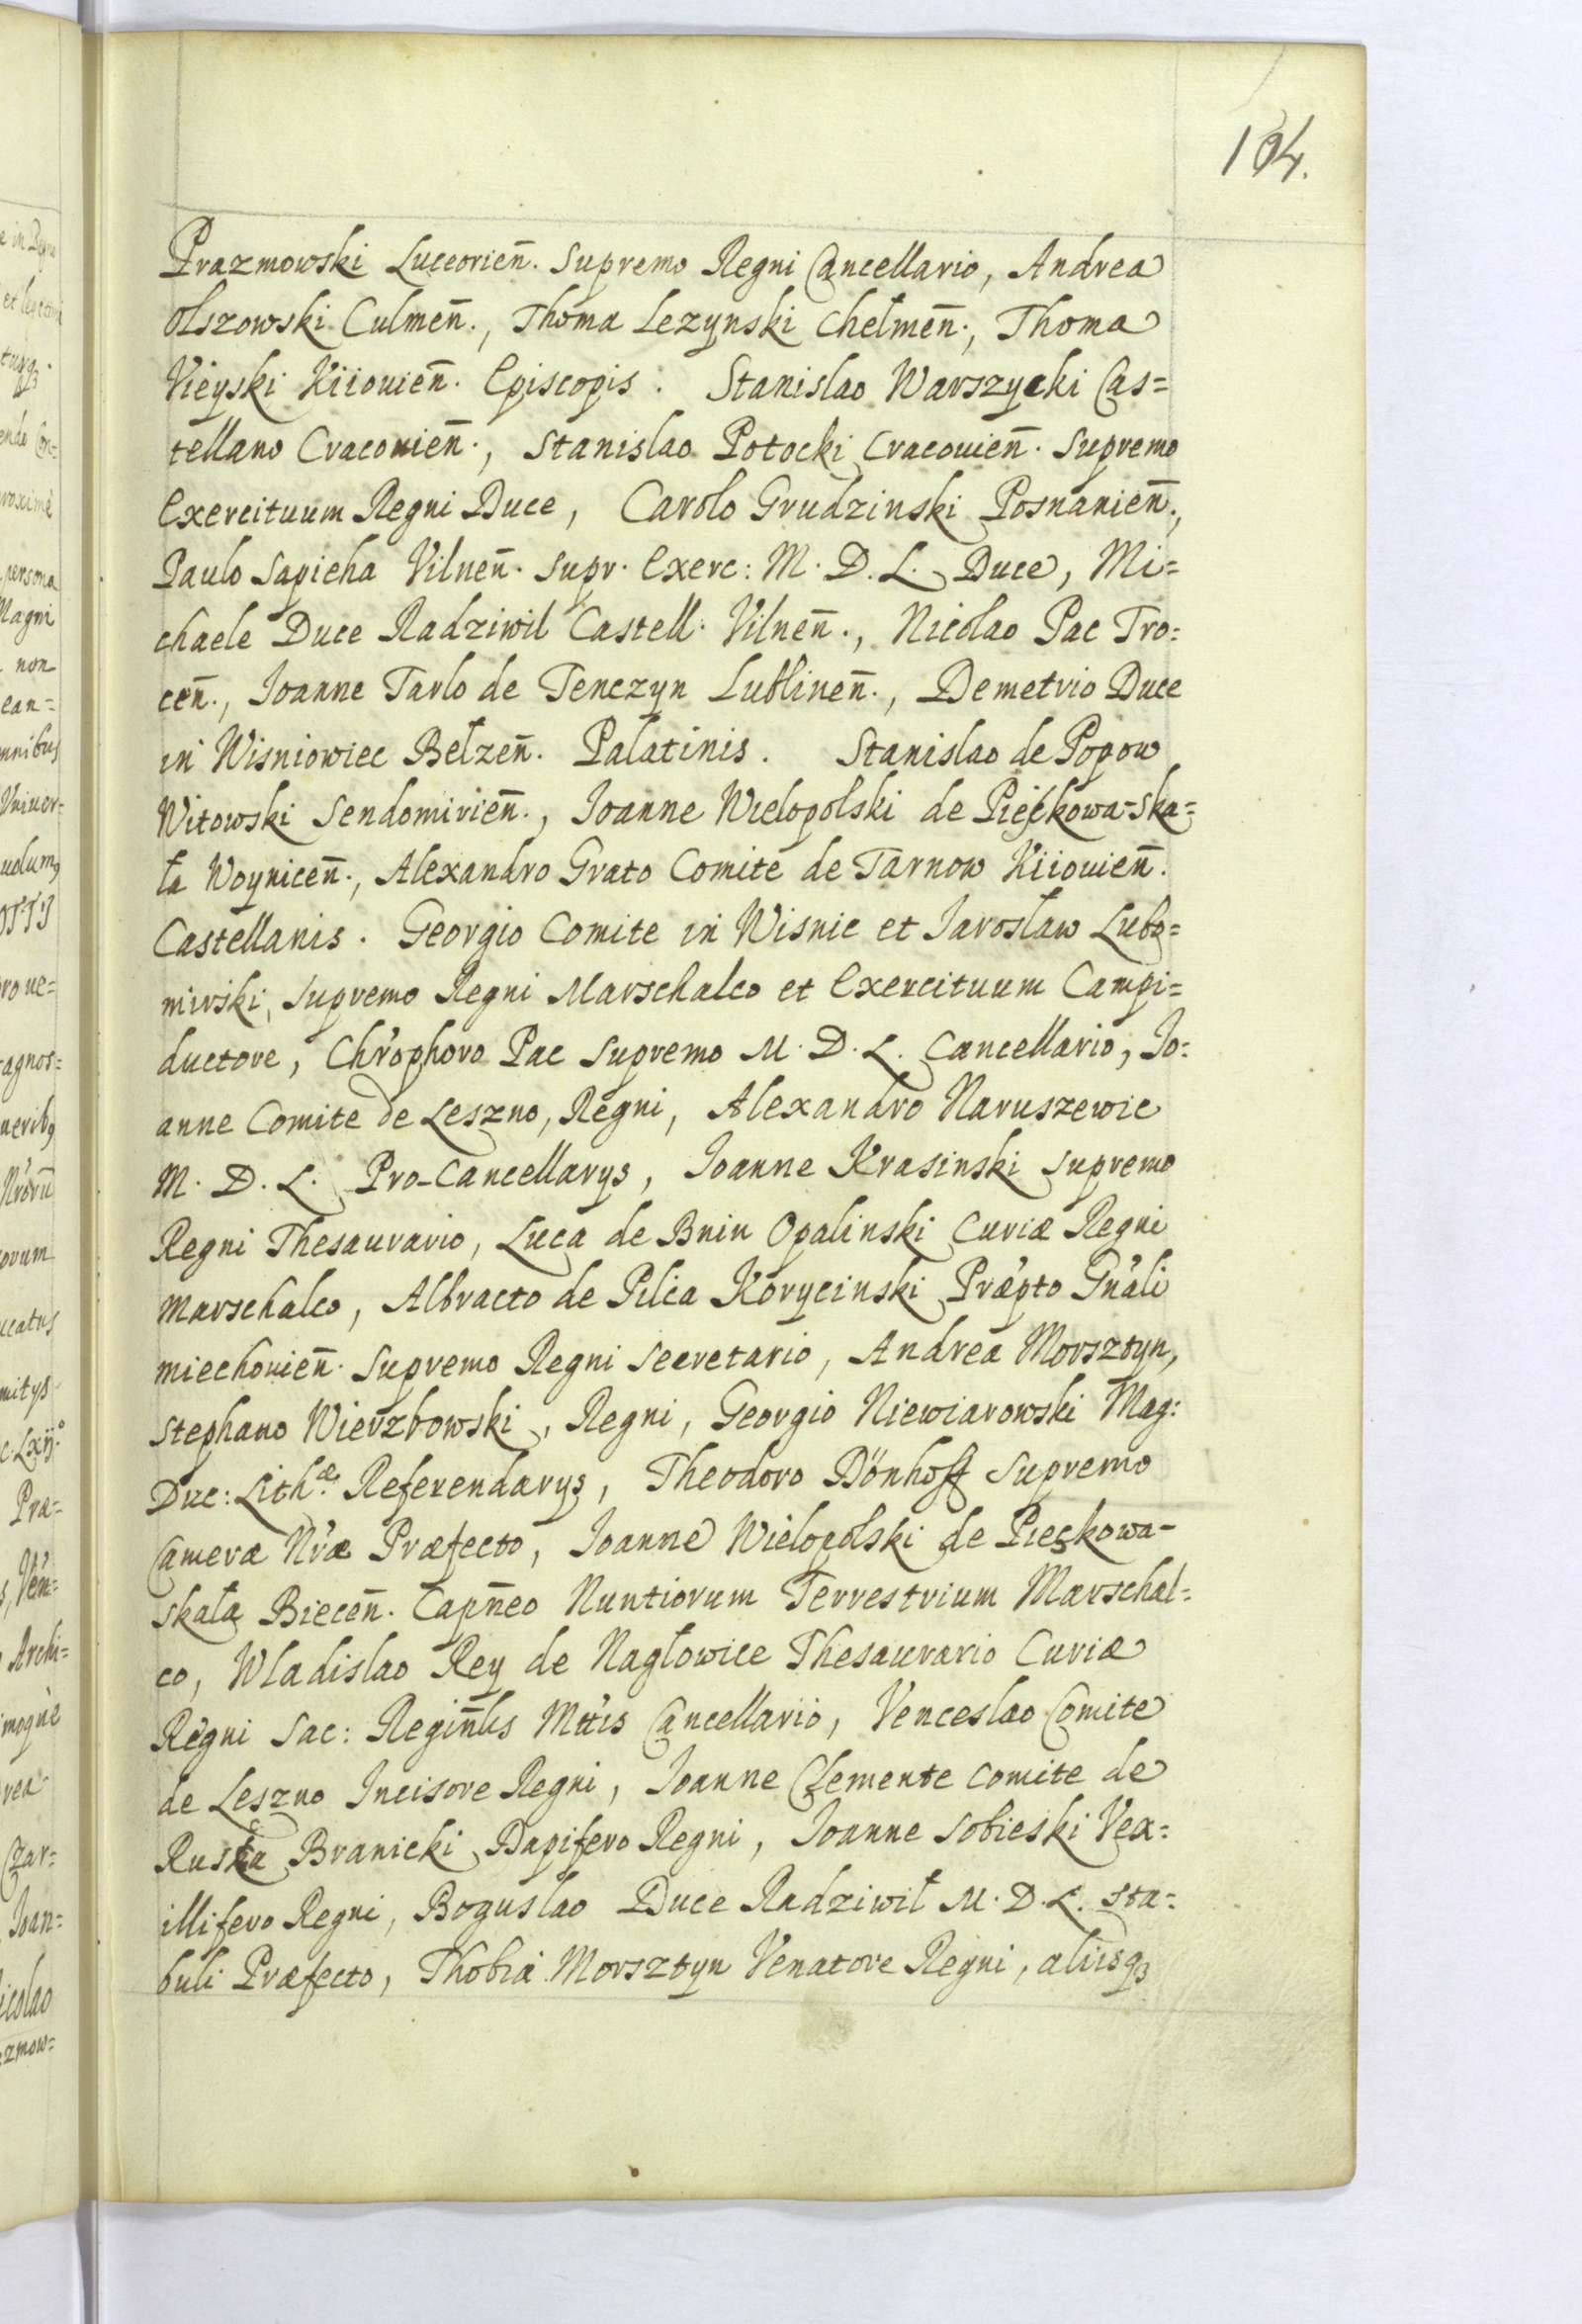 104.
Prazmowski Luceorien̄. Supremo Regni Cancellario, Andrea
Olszowski Culmen̄., Thoma Lezynski Chełmen̄., Thoma
Vieyski Kiiouien̄. Episcopis. Stanislao Warszycki Cas=
tellano Cracouien̄., Stanislao Potocki Cracouien̄. Supremo
Exercituum Regni Duce, Carolo Grudzinski Posnanien̄.,
Paulo Sapieha Vilnen̄. Supr. Exerc: M. D. L. Duce, Mi=
chaele Duce Radziwil Castell. Vilnen̄., Nicolao Pac Tro=
cen̄., Joanne Tarlo de Tenczyn Lublinen̄., Demetrio Duce
in Wisniowiec Bełzen̄. Palatinis. Stanislao de Popow
Witowski Sendomirien̄., Joanne Wielopolski de Pieskowa-Ska=
ła Woynicen̄., Alexandro Grato Comite de Tarnow Kiiouien̄.
Castellanis. Georgio Comite in Wisnic et Jarosław Lubo=
mirski, Supremo Regni Marschalco et Exercituum Campi=
ductore, Chr̓ophoro Pac Supremo M. D. L. Cancellario, Jo=
anne Comite de Leszno, Regni, Alexandro Naruszewic
M. D. L. Pro-Cancellarys, Joanne Krasinski Supremo
Regni Thesaurario, Luca de Bnin Opalinski Curiæ Regni
Marschalco, Albracto de Pilca Korycinski Præp̓to Gn̓ali
Miechouien̄. Supremo Regni Secretario, Andrea Morsztyn,
Stephano Wierzbowski, Regni, Georgio Niewiarowski Mag:
Duc: Lith.æ Referendarys, Theodoro Dönhoff Supremo
Cameræ Nr̓æ Præfecto, Joanne Wielopolski de Pieskowa-
skała Biecen̄. Capn̄eo Nuntiorum Terrestrium Marschal=
co, Wladislao Rey de Nagłowice Thesaurario Curiæ
Regni Sac: Regin̄lis Mtt̓is Cancellario, Venceslao Comite
de Leszno Incisore Regni, Joanne Clemente Comite de
Rusca Branicki Dapifero Regni, Joanne Sobieski Vex=
illifero Regni, Boguslao Duce Radziwił M. D. L. Sta=
buli Præfecto, Thobia Morsztyn Venatore Regni, aliisqꝫ